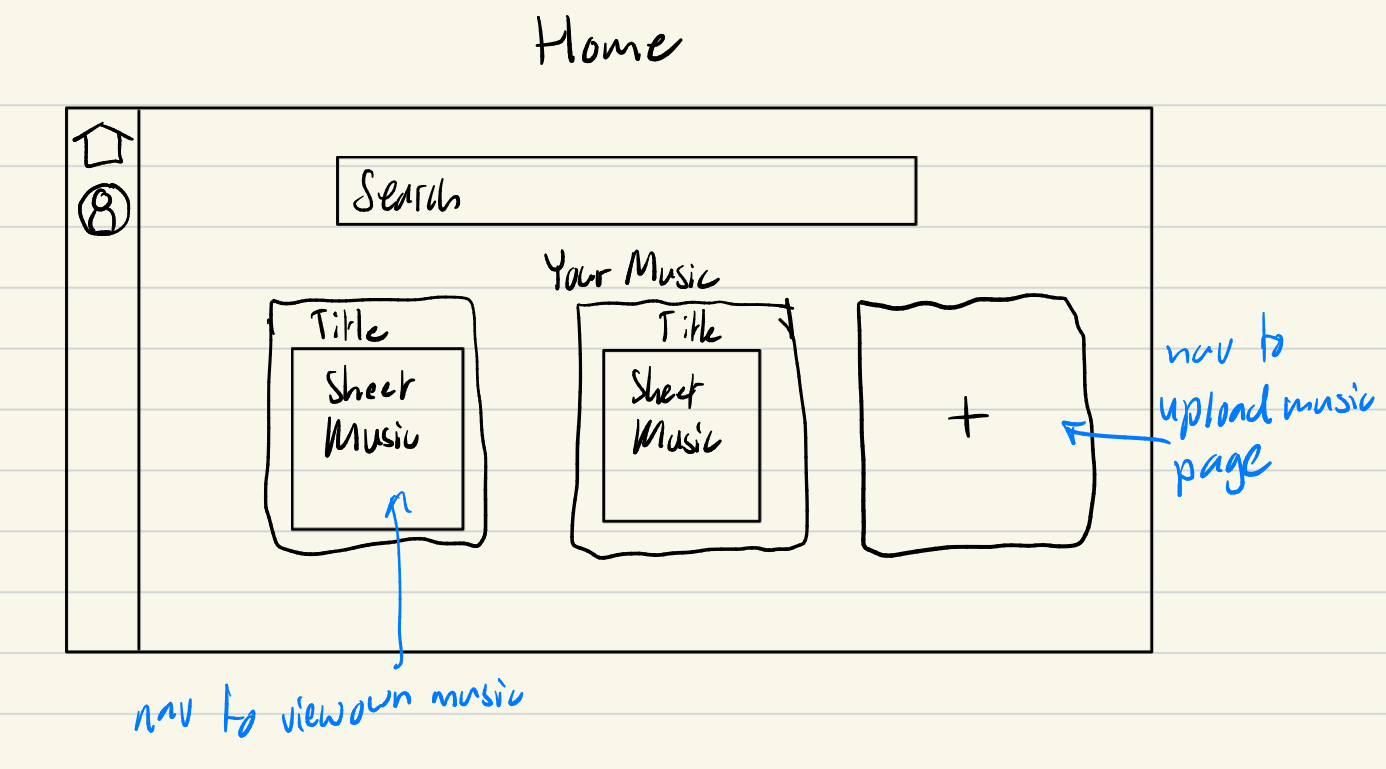 Home
Search
Your Music
Title
Sheet
Music
Title
Sheet
Music
+
nav to
upload music
page
nav to view own music